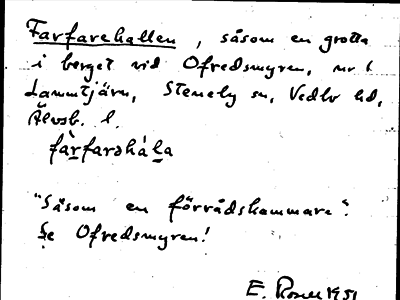 Farfarehallen, såsom en grotta
i berget vid Ofredsmyren, nr 6
Lammtjärn, Steneby sn, Vedbo hd,
Älvsb. l.
fàrfarəhála
"Såsom en förrådskammare".
Se Ofredsmyren!
E. 1951